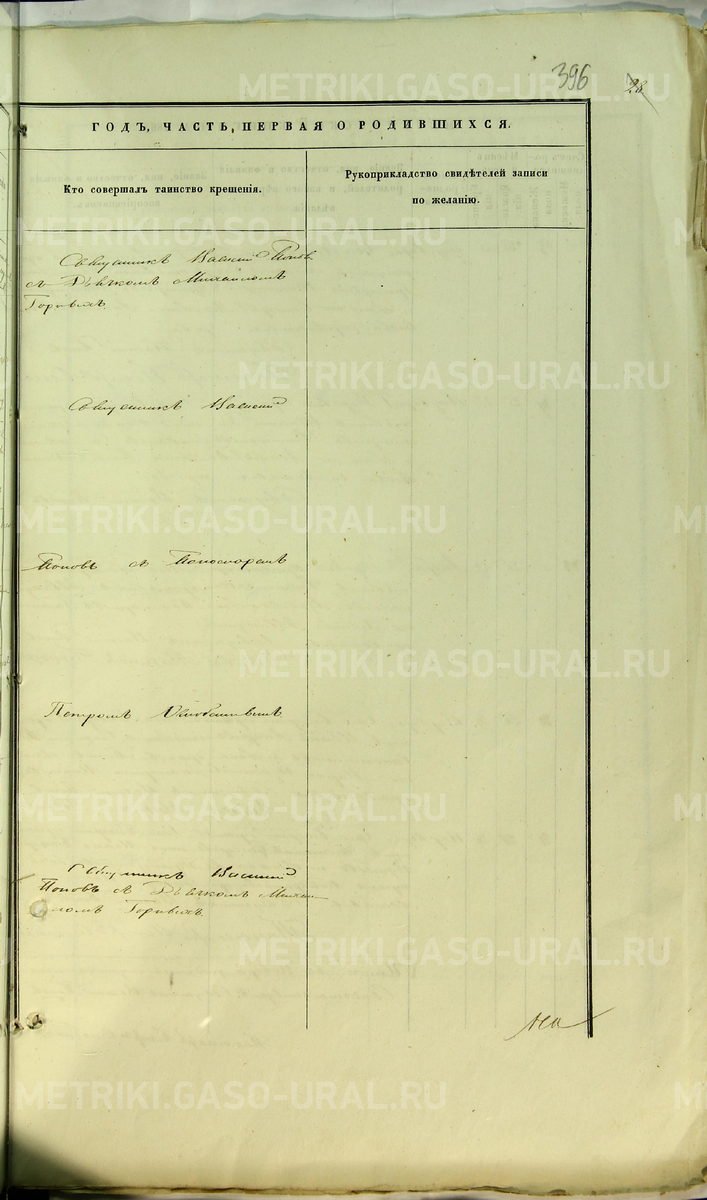 396
28
ГОДЪ, ЧАСТЬ, ПЕРВАЯ О РОДИВШИХСЯ.
Кто совершалъ таинство крещенія.
Рукоприкладство свидѣтелей записи
по желанію.
Священникъ Василій Поповъ
съ Дьячкомъ Михаиломъ
Священникъ Василій
Поповъ съ Пономаремъ
Петромъ
Священникъ Василій
Поповъ съ Дьячкомъ Михаи
ломъ
METRIKI.GASO-URAL.RU